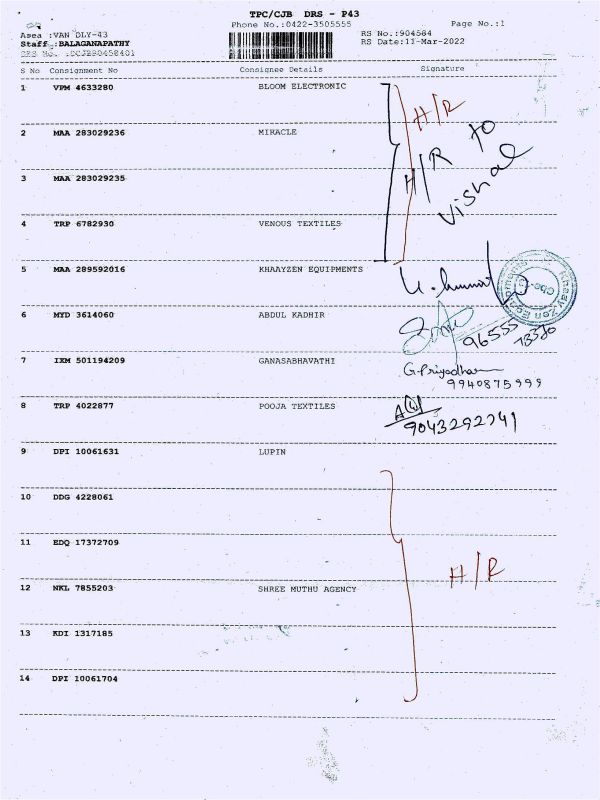 TPC/CJB DRS - P43
Phone No.:0422-3505555 Page No.:1
Asea :VAN DLY-43 RS No.:904584
Staff :BALAGANAPATHY RS Date:11-Mar-2022
S No Consignment No Consignee Details Signature
1 VPM 4633280 BLOOM ELECTRONIC
H/R
2 MAA 283029236 MIRACLE
H/R to
Vishal
3 MAA 283029235
4 TRP 6782930 VENOUS TEXTILES
5 MAA 289592016 KHAAYZEN EQUIPMENTS
Khaay Zen Equipments
6 MYD 3614060 ABDUL KADHIR
96555
13380
7 IXM 501194209 GANASABHAVATHI
G.Priyadhar
9940875999
8 TRP 4022877 POOJA TEXTILES
9043292241
9 DPI 10061631 LUPIN
10 DDG 4228061
11 EDQ 17372709
H/R
12 NKL 7855203 SHREE MUTHU AGENCY
13 KDI 1317185
14 DPI 10061704